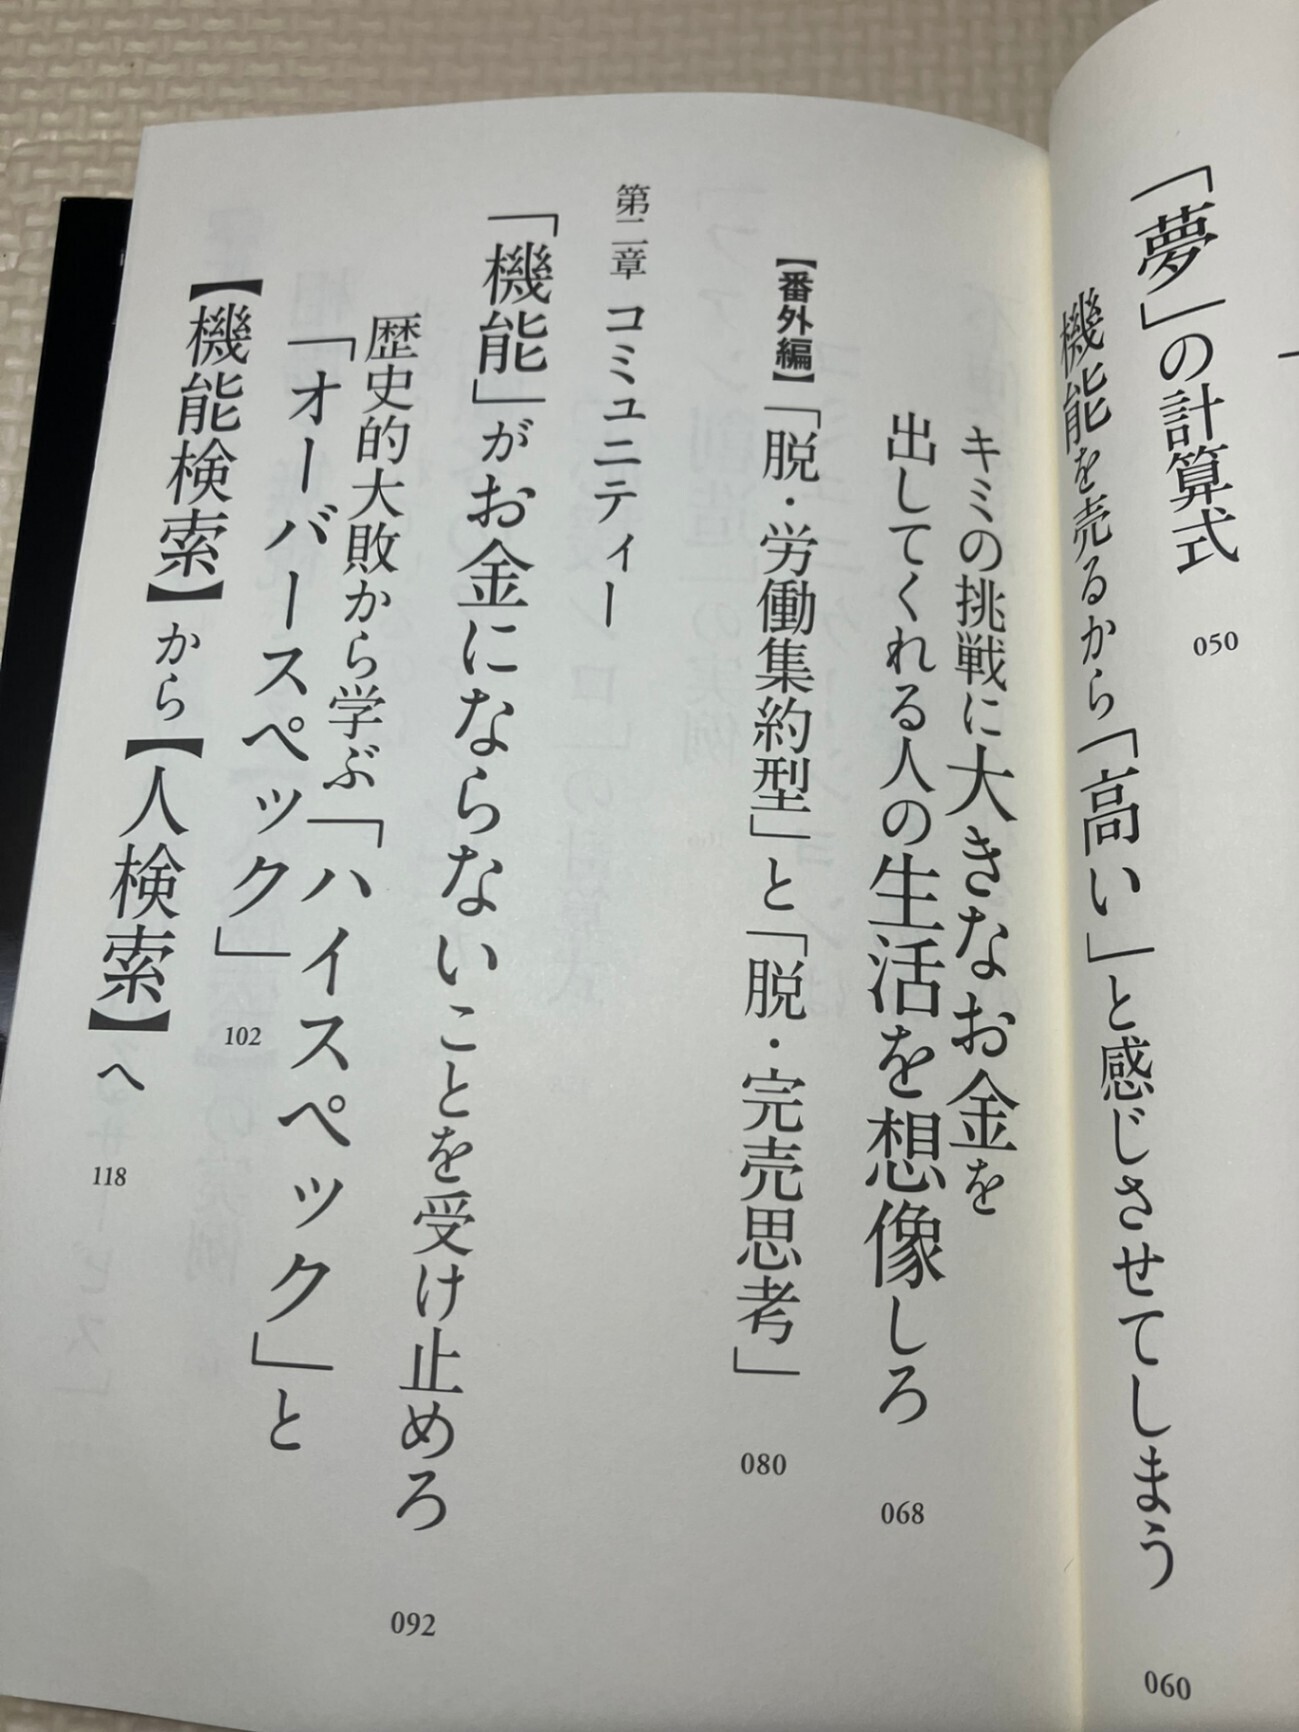 「夢」の計算式
050
機能を売るから「高い」と感じさせてしまう
060
キミの挑戦に大きなお金を
出してくれる人の生活を想像しろ
068
【番外編】「脱・労働集約型」と「脱・完売思考」
080
第二章 コミュニティー
「機能」がお金にならないことを受け止めろ
092
歴史的大敗から学ぶ「ハイスペック」と
「オーバースペック」
102
【機能検索】から【人検索】へ
118